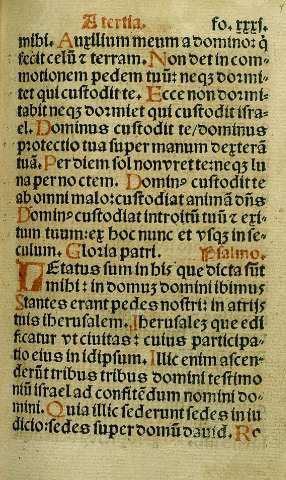 A tertia. fo. xxxj.
mihi. Auxilium meum a domino: q̃
fecit celũ ⁊ terram. Non det in com⸗
motionem pedem tuũ: neqꝫ dormi⸗
tet qui custodit te. Ecce non dormi⸗
tabit neqꝫ dormiet qui custodit isra⸗
el. Dominus custodit te/dominus
protectio tua super manum dexterã
tuã. Per diem sol non vret te: neqꝫ lu
na per noctem. Dominꝰ custodit te
ab omni malo: custodiat animã dñs
Dominꝰ custodiat introitũ tuũ ⁊ exi⸗
tum tuum: ex hoc nunc et vsqꝫ in se⸗
culum. Gloria patri. Psalmo.
LEtatus sum in his que dicta sũt
mihi: in domuꝫ domini ibimus
Stantes erant pedes nostri: in atrijs
tuis iherusalem. Iherusaleꝫ que edi
ficatur vt ciuitas: cuius participa⸗
tio eius in idipsum. Illic enim ascen⸗
derũt tribus tribus domini testimo
niũ israel ad confitẽdum nomini do⸗
mini. Quia illic sederunt sedes in iu
dicio: sedes super domũ dauid. Ro